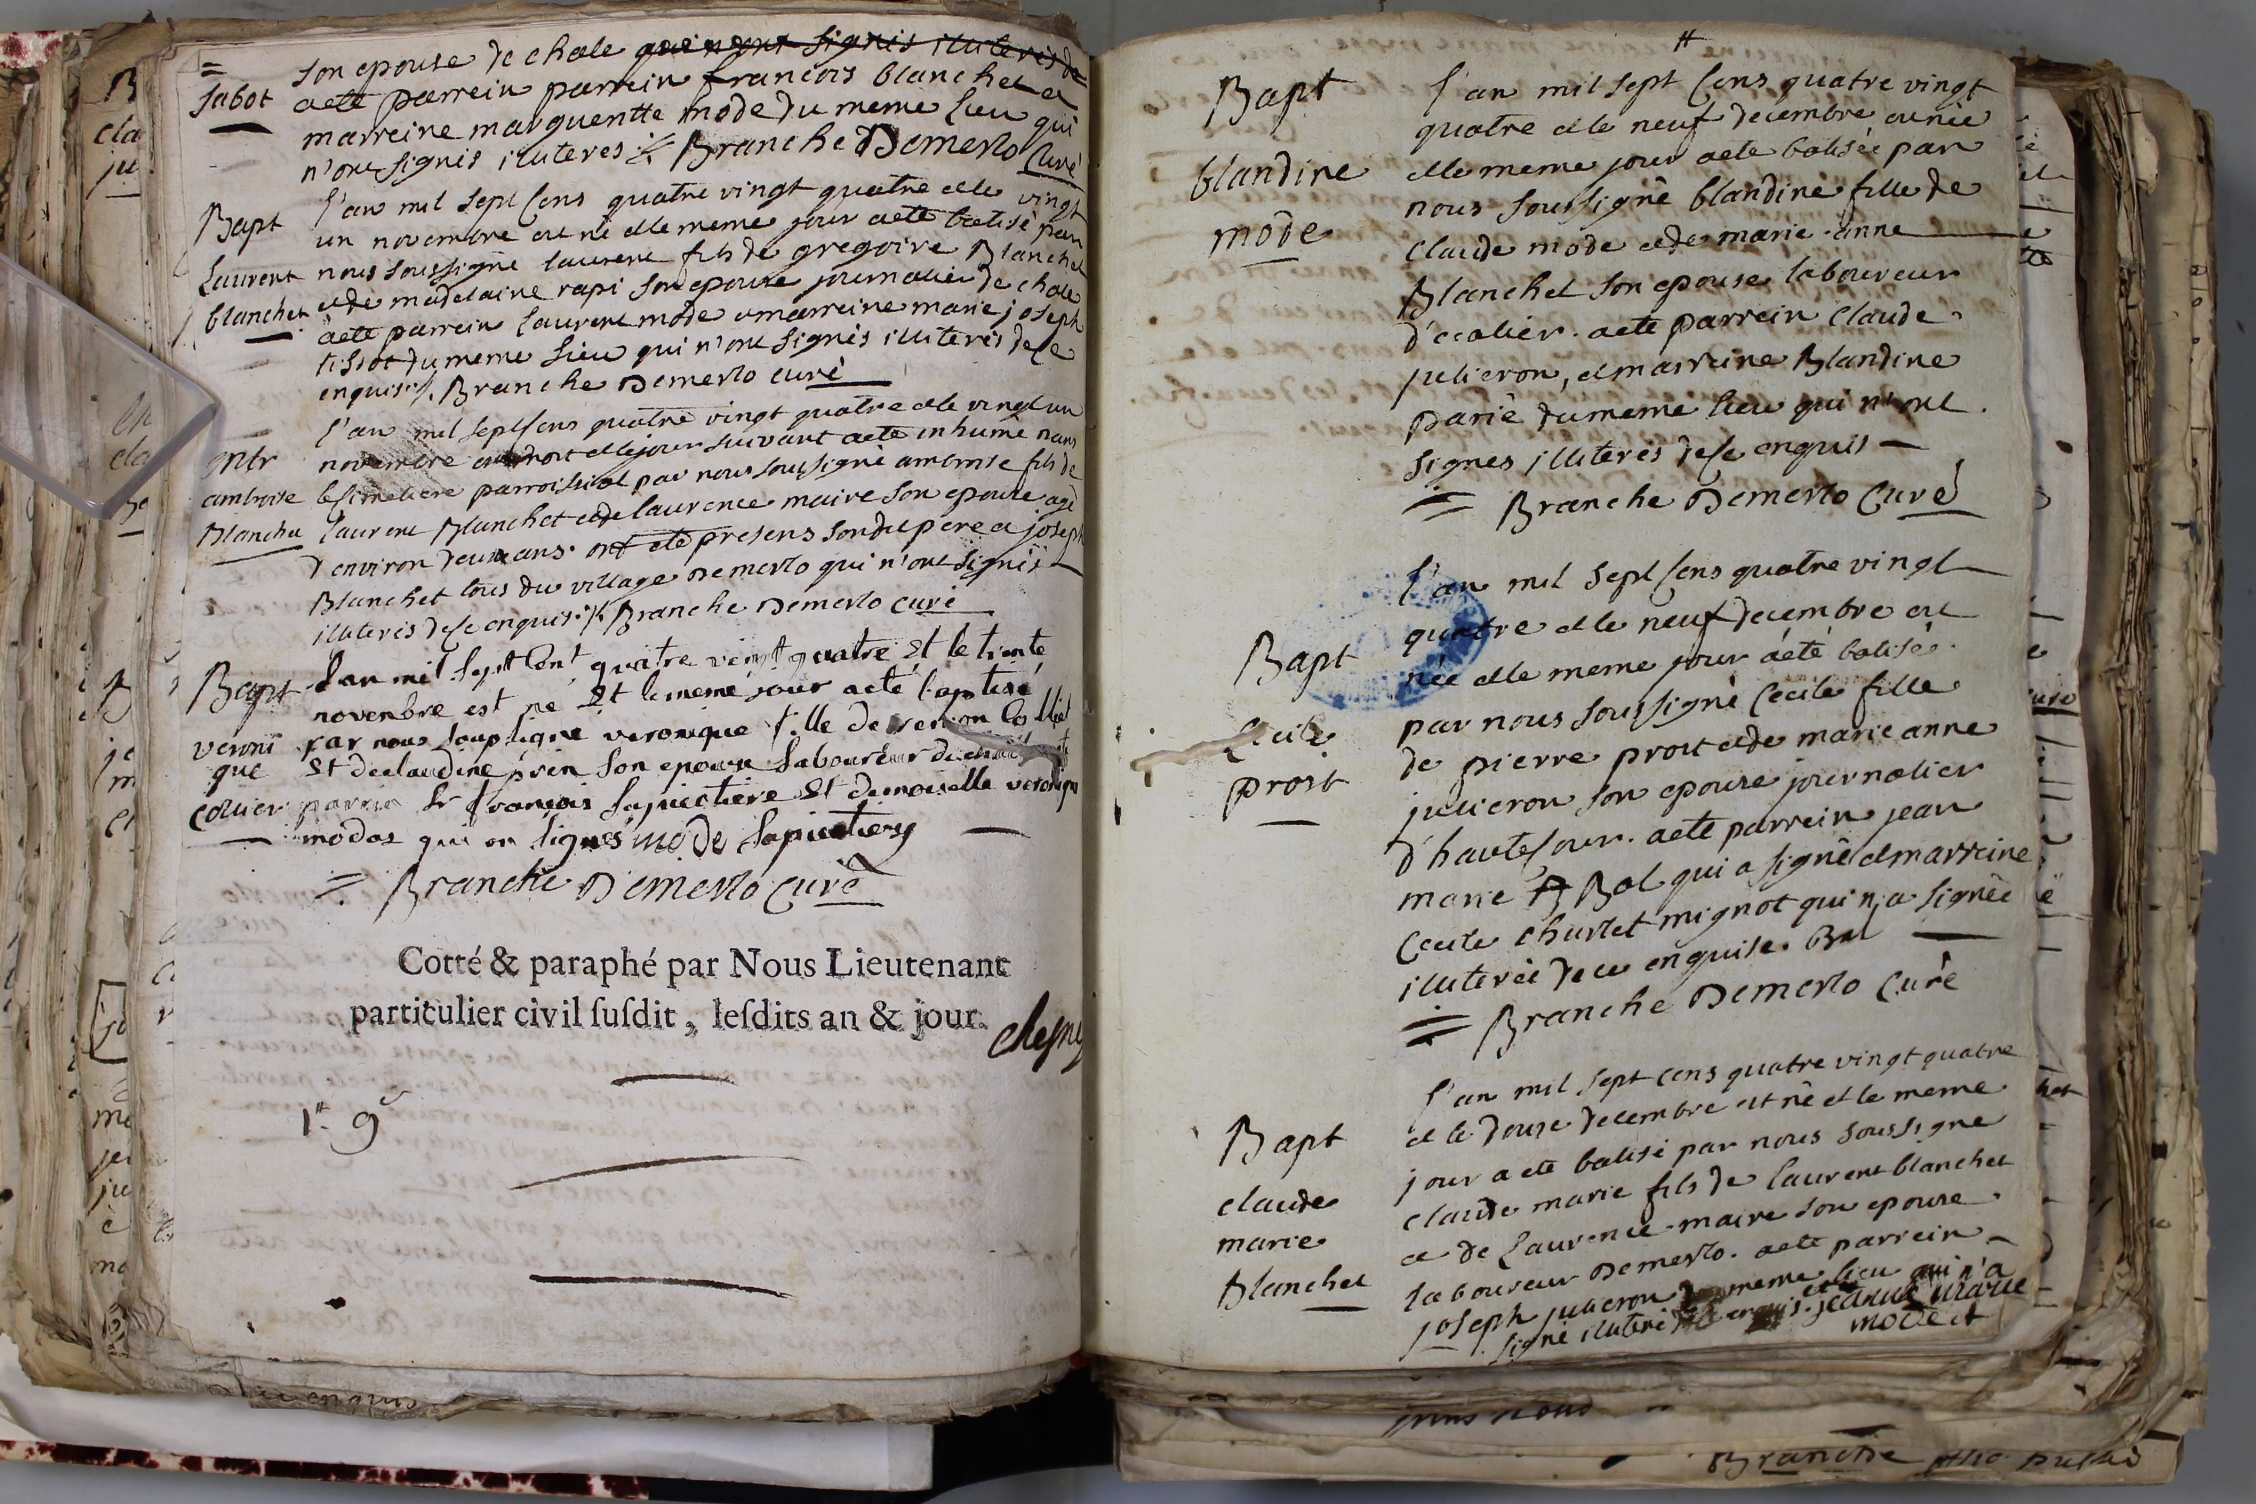 son epouse de chale qui n'ont signis illiterés de
Sabot
aete parrein parrein francois blanchet et
marreine marguentte mode du meme lieu qui
n'ont signis illiteres ./. Branche Demerlo Curé
Bapt
Laurent
blanchet
l'an mil sept Cens quatre vingt quatre et le vingt
un novembre est né et le meme jour aeté batisé par
nous soussigné laurent fils de gregoire Blanchet
et de madelaine rapi son epouse journalier de chale
aete parrein laurent mode et marreine marie joseph
tissot du meme lieu qui n'ont signés illiterés de ce
enquis ./. Branche Demerlo curé
entr
ambroise
Blanchet
l'an mil sept Cens quatre vingt quatre et le vingt un
novembre est mort et le jour suivant aeté inhumé dans
le Cimetiere parroissial par nous soussigné ambroise fils de
laurent Blanchet et de laurence maire son epouse agé
d'environ deux ans. ont eté presens son dit pere et joseph
Blanchet tous du village Demerlo qui n'ont signés
illiterés de ce enquis ./. Branche Demerlo curé
Bapt
veroni
que
collier
L'an mil sept Cent quatre vingt quatre Et le trente
novenbre est né Et le meme jour aeté baptisé
par nous sousigné veronique fille de
Et de claudine prin son epouse laboureur de
parrin Sr françois lapicotiere Et demoiselle veronique
modas qui on signés mode lapicotiery
= Branche Demerlo Curé
Cotté & paraphé par Nous Lieutenant
particulier civil susdit, lesdits an & jour.
chesny
1er 9
Bapt
blandine
mode
l'an mil sept Cens quatre vingt
quatre et le neuf decembre est née
et le meme jour aeté batisée par
nous soussigné blandine fille de
Claude mode et de marie anne
Blanchet son epouse laboureur
d'ecolier. aeté parrein Claude
julieron, et marreine Blandine
parié du meme lieu qui n'ont
signes illiterés de ce enquis —
= Branche Demerlo Curé
Bapt
Cecile
prost
l'an mil sept Cens quatre vingt
quatre et le neuf decembre est
née et le meme jour aeté batisée
par nous soussigné Cecile fille
de pierre prost et de marie anne
julieron son epouse journalier
d'hautecour. aeté parrein jean
marie B Bal qui a signé et marreine
Cecile Charlet mignot qui n'a signée
illiterée de ce enquise. Bal
= Branche Demerlo Curé
Bapt
claude
marie
Blanchet
l'an mil sept cens quatre vingt quatre
et le douze decembre est né et le meme
jour a eté batisé par nous soussigne
claude marie fils de laurent blanchet
et de Laurence maire son epouse
laboureur Demerlo. aeté parrein
joseph julieron du meme lieu qui n'a
signé illiteré de ce enquis. jeanne marie
mode et
enquis
nous
Branche